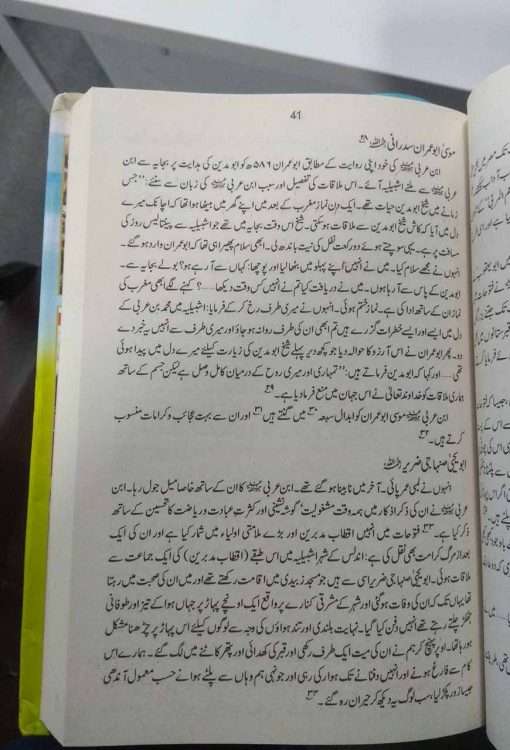 41
موسیٰ ابو عمران سدرانی ؒ ۳۸
ابن عربی ؒ کی خود اپنی روایت کے مطابق ابو عمران ۵۸۶ھ کو ابو مدین کی ہدایت پر بجایہ سے ابن
عربی ؒ سے ملنے اشبیلیہ آئے۔ اس ملاقات کی تفصیل اور سبب ابن عربی ؒ کی زبان سے سنئے: ”جس
زمانے میں شیخ ابو مدین حیات تھے۔ ایک دن نماز مغرب کے بعد میں اپنے گھر میں بیٹھا ہوا تھا کہ اچانک میرے
دل میں آیا کہ کاش شیخ ابو مدین سے ملاقات ہو سکتی۔ شیخ اس وقت بجایہ میں تھے جو اشبیلیہ سے پینتالیس روز کی
مسافت پر ہے۔ یہی سوچتے ہوئے دو رکعت نفل کی نیت باندھ لی۔ ابھی سلام پھیرا ہی تھا کہ ابو عمران وارد ہو گئے۔
انہوں نے مجھے سلام کیا۔ میں نے انہیں اپنے پہلو میں بٹھا لیا اور پوچھا: کہاں سے آ رہے ہو؟ بولے بجایہ سے۔
ابو مدین کے پاس سے آ رہا ہوں۔ میں نے دریافت کیا تم نے انہیں کس وقت دیکھا۔۔۔؟ کہنے لگے ابھی مغرب کی
نماز ان کے ساتھ ادا کی ہے۔ نماز ختم ہوئی۔ انہوں نے میری طرف رخ کر کے فرمایا: اشبیلیہ میں محمد بن عربی کے
دل میں ایسے اور ایسے خطرات گزرے ہیں تم ابھی ان کی طرف روانہ ہو جاؤ اور میری طرف سے انہیں یہ خبر دے
دو۔ پھر ابو عمران نے اس آرزو کا حوالہ دیا جو کچھ دیر پہلے شیخ ابو مدین کی زیارت کیلئے میرے دل میں پیدا ہوئی
تھی۔۔۔ اور کہا کہ ابو مدین فرماتے ہیں: ”تمہاری اور میری روح کے درمیان کامل وصل ہے لیکن جسم کے ساتھ
ہماری ملاقات کو خداوند تعالیٰ نے اس جہان میں منع فرما دیا ہے۔ ۳۹
ابن عربی ؒ موسیٰ ابو عمران کو ابدال سبعہ ۴۰ میں گنتے ہیں ۴۱ اور ان سے بہت عجائب و کرامات منسوب
کرتے ہیں۔ ۴۲
ابو یحییٰ صنہاجی ضریر ؒ
انہوں نے لمبی عمر پائی۔ آخر میں نابینا ہو گئے تھے۔ ابن عربی ؒ کا ان کے ساتھ خاصا میل جول رہا۔ ابن
عربی ؒ نے ان کی ذکر اذکار میں ہمہ وقت مشغولیت‘ گوشہ نشینی اور کثرتِ عبادت و ریاضت کا تحسین کے ساتھ
ذکر کیا ہے۔ ۴۳ فتوحات میں انہیں اقطاب مدبرین اور بڑے ملامتی اولیاء میں شمار کیا ہے اور ان کی ایک
بعد از مرگ کرامت بھی نقل کی ہے: اندلس کے شہر اشبیلیہ میں اس طبقے (اقطاب مدبرین) کی ایک جماعت سے
ملاقات ہوئی۔ ابو یحییٰ صنہاجی ضریر اسی سے ہیں جو مسجد زبیدی میں اقامت رکھتے تھے اور میں ان کی صحبت میں رہتا
تھا یہاں تک کہ ان کی وفات ہو گئی اور شہر کے مشرقی کنارے پر واقع ایک اونچے پہاڑ پر جہاں ہوا کے تیز اور طوفانی
جھکڑ چلتے رہتے تھے انہیں دفن کیا گیا۔ نہایت بلندی اور تند ہواؤں کی وجہ سے لوگوں کیلئے اس پہاڑ پر چڑھنا مشکل
ہو رہا تھا۔ اوپر پہنچ کر ہم نے ان کی میت ایک طرف رکھی اور قبر کی کھدائی اور پتھر کاٹنے میں لگ گئے۔ ہمارے اس
کام سے فارغ ہونے اور انہیں دفنانے تک ہوا رکی رہی اور جونہی ہم وہاں سے پلٹے ہوا نے حسب معمول آندھی
جیسا زور پکڑ لیا، سب لوگ یہ دیکھ کر حیران رہ گئے۔ ۴۴